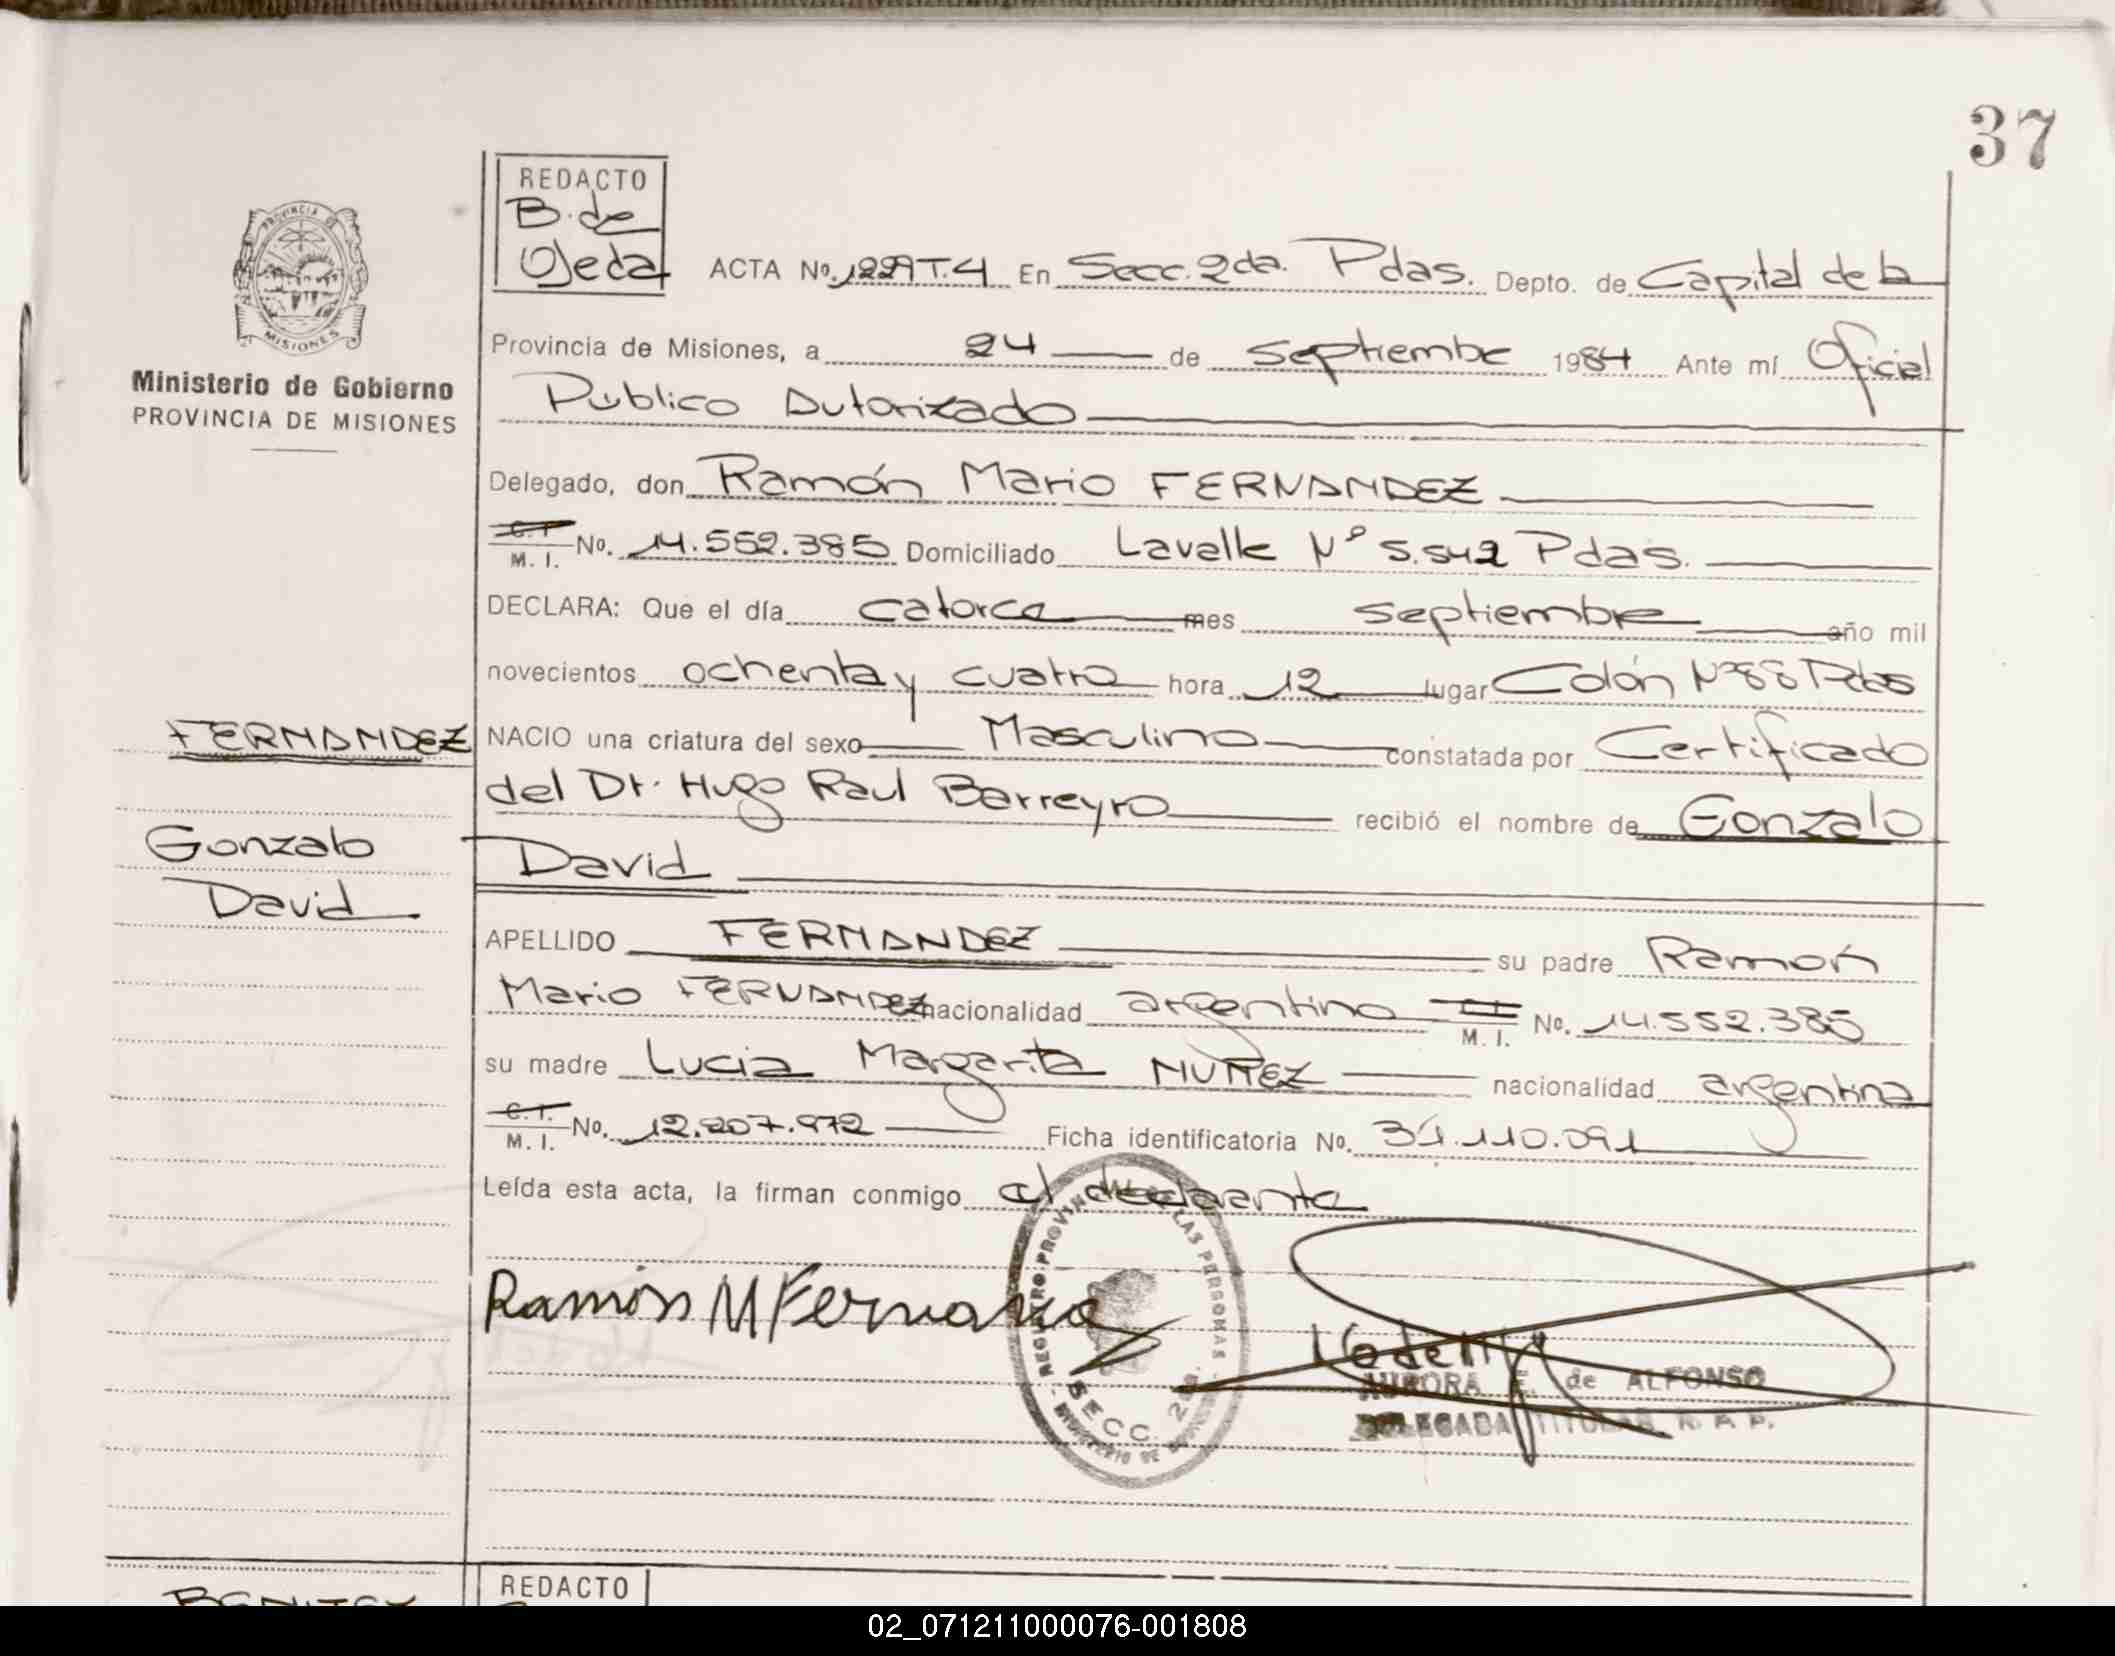 37
REDACTO
B. de
Ojeda
ACTA No. 1229 T.4 En Secc. 2da. Pdas. Depto. de Capital de la
PROVINCIA DE
MISIONES
Ministerio de Gobierno
PROVINCIA DE MISIONES
Provincia de Misiones, a 24 de Septiembre 1984 Ante mí Oficial
Público Autorizado
Delegado, don Ramón Mario FERNANDEZ
C.I. M. I. No. 14.552.385 Domiciliado Lavalle Nº 5.542 Pdas.
DECLARA: Que el día catorce mes septiembre año mil
novecientos ochenta y cuatro hora 12 lugar Colón Nº 88 Pdas
FERNANDEZ
NACIO una criatura del sexo Masculino constatada por Certificado
del Dr. Hugo Raul Barreyro recibió el nombre de Gonzalo
Gonzalo
David
David
APELLIDO FERNANDEZ su padre Ramón
Mario FERNANDEZ nacionalidad argentino C.I. M. I. No. 14.552.385
su madre Lucia Margarita NUÑEZ nacionalidad argentina
C.I. M. I. No. 12.207.972 Ficha identificatoria No. 31.110.091
Leída esta acta, la firman conmigo el declarante
Ramón M Fernandez
REGISTRO PROVINCIAL DE LAS PERSONAS
SECC. 2da.
MINISTERIO DE GOBIERNO
AURORA E. de ALFONSO
DELEGADA TITULAR R. A P.
BENITEZ
REDACTO
02_071211000076-001808